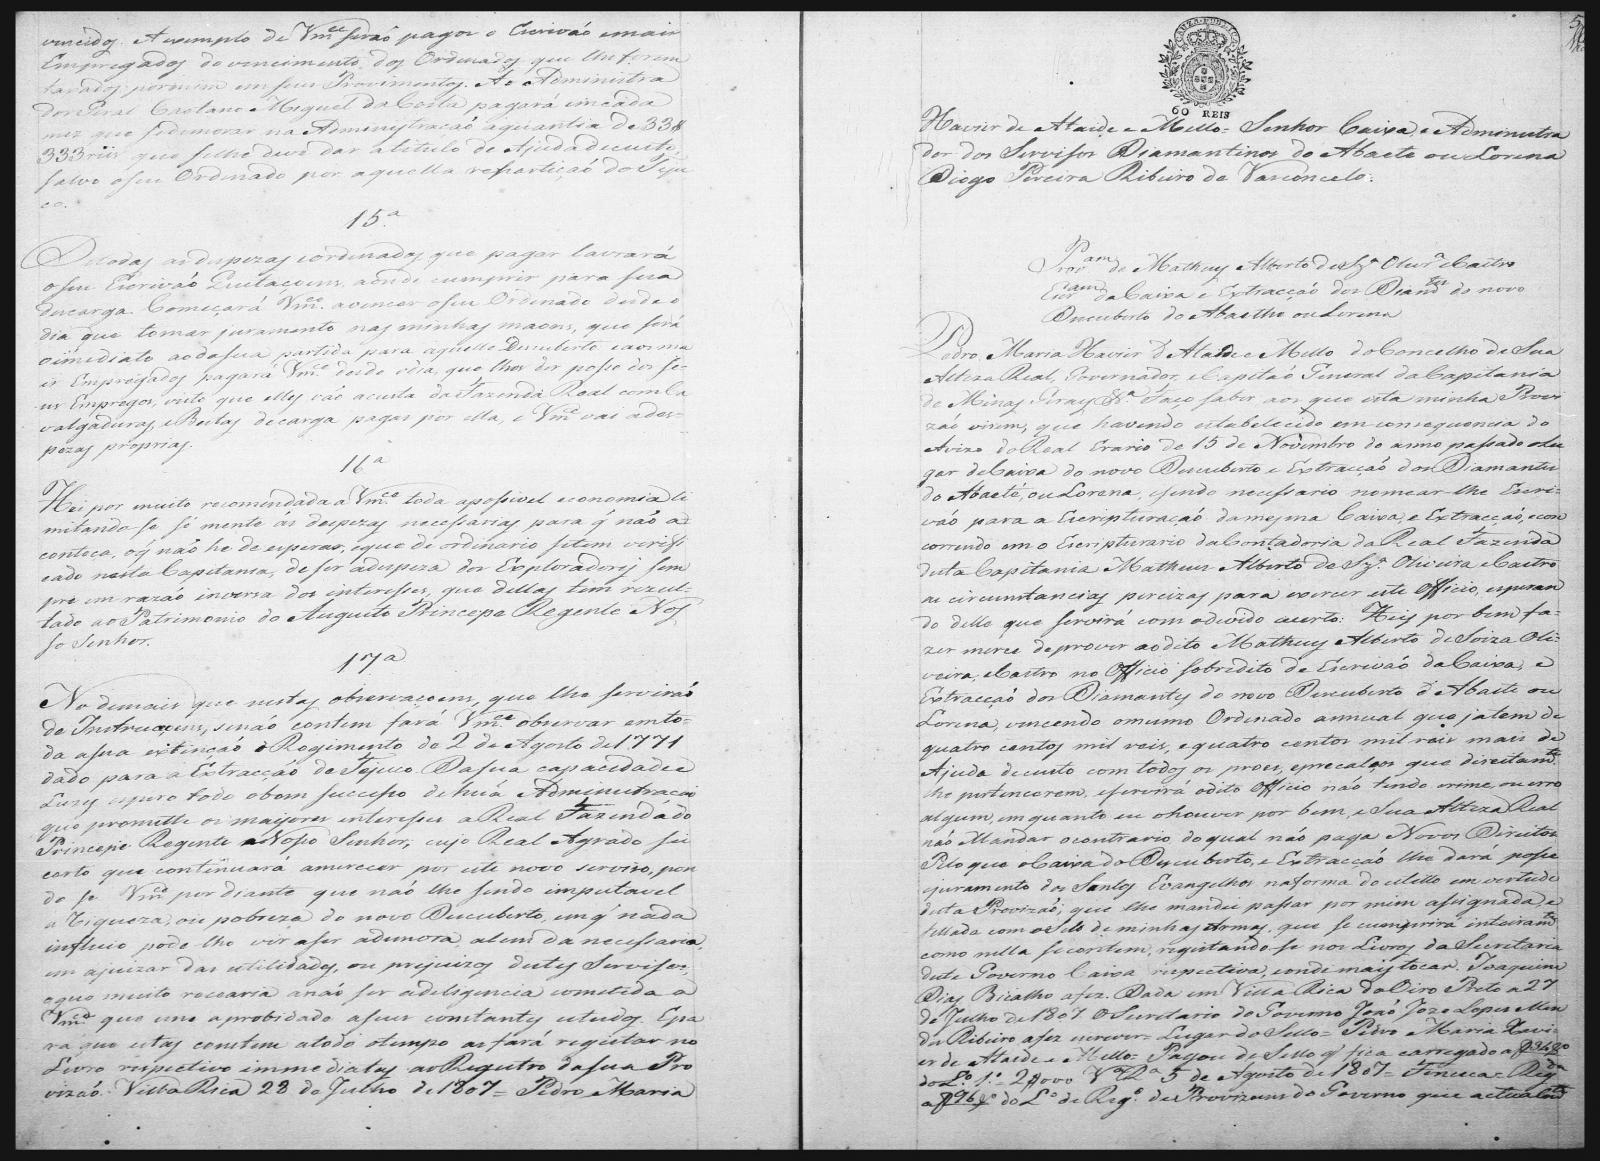 vencidos. A exemplo de Vm.ce serão pagos o Escrivão e mais
Empregados do vencimento dos Ordenados que lhe forem
taxados por mim em seus Provimentos. Ao Administra
dor Geral Caetano Miguel da Costa pagará em cada
mez que se demorar na Administração a quantia de 33$
333 reis que se lhe deve dar a titulo de Ajuda de custo,
salvo o seu Ordenado por aquella repartição do Teju
co.
15.ª
De todas as despezas e ordenados que pagar lavrará
o seu Escrivão Quitaçoens, aonde cumprir para sua
descarga. Começará Vm.ce a vencer o seu Ordenado desde o
dia que tomar juramento nas minhas maons, que será
o imediato ao da sua partida para aquelle Descuberto e aos ma
is Empregados pagará Vm.ce desde o dia, que lhes der posse dos se-
us Empregos, visto que elles vão a custa da Fazenda Real com Ca
valgaduras, e Bestas de carga pagas por ella, e Vm.ce vai a des-
pezas proprias.
16ª
Hei por muito recomendada a Vm.ce toda a possivel economia li
mitando-se sómente ás despezas necessarias para q' não a
conteça, o q' não he de esperar, e que de ordinario se tem verifi
cado nesta Capitania, de ser a despeza dos Exploradores sem
pre em razão inversa dos interesses, que dellas tem rezul-
tado ao Patrimonio do Augusto Principe Regente Nos
so Senhor.
17ª
No demais que nestas observaçoens, que lhe servirão
de Instruçoens, se não contem fará Vm.ce observar em to-
da a sua extenção o Regimento de 2 de Agosto de 1771
dado para a Extracção do Tejuco. Da sua capacidade e
Luzes espero todo o bom successo de hua Administração
que promette os maiores interesses a Real Fazenda do
Principe Regente Nosso Senhor, cujo Real Agrado sei
certo que continuará a merecer por este novo serviso, pon
do se Vm.ce por diante que não lhe sendo imputavel
a riqueza, ou pobreza do novo Descuberto, em q' nada
influio pode lhe vir a ser a demora, alem da necessaria,
em ajuizar das utilidades, ou prejuizos destes Servisos,
o que muito recearia a não ser a deligencia cometida a
Vm.ce que une a probidade a seus constantes estudos. E pa
ra que estas constem a todo o tempo as fará registar no
Livro respectivo immediatas ao Registro da sua Pro
vizão. Villa Rica 28 de Julho de 1807 = Pedro Maria
60 REIS
Xavier de Ataide e Mello = Senhor Caixa e Administra
dor dos Servisos Diamantinos do Abaete ou Lorena
Diogo Pereira Ribeiro de Vasconcelos.
Prov.am de Matheus Alberto de Sz.ª Oliv.ª e Castro
Escr.am da Caixa e Extracção dos Diam.tes do novo
Descuberto do Abaethe ou Lorena
Pedro Maria Xavier d'Ataide e Mello do Concelho de Sua
Alteza Real, Governador, e Capitão General da Capitania
de Minas Geraes &ª Faço saber, aos que esta minha Provi
zão virem, que havendo estabelecido em consequencia do
Avizo do Real Erario de 15 de Novembro do anno passado o Lu
gar de Caixa do novo Descuberto e Extracção dos Diamantes
do Abaeté, ou Lorena, e sendo necessario nomear-lhe Escri-
vão para a Escripturação da mesma Caixa, e Extracção, e con
correndo em o Escripturario da Contadoria da Real Fazenda
desta Capitania Matheus Alberto de Sz.ª Oliveira e Castro
as circunstancias precizas para exercer este Officio, esperan
do delle que servirá com o devido acerto: Hey por bem fa-
zer merce de prover ao dito Matheus Alberto de Soiza Oli-
veira, e Castro no Officio sobredito de Escrivão da Caixa, e
Extracção dos Diamantes do novo Descuberto d'Abaete ou
Lorena, vencendo o mesmo Ordenado annual que ja tem de
quatro centos mil reis, e quatro centos mil reis mais de
Ajuda de custo com todos os proes, e precalços que direitam.te
lhe pertencerem, e servirá o dito Officio não tendo crime, ou erro
algum, em quanto eu o houver por bem, e Sua Alteza Real
não Mandar o contrario, do qual não paga Novos Direitos
Pelo que o Caixa do Descuberto, e Extracção lhe dará posse
e juramento dos Santos Evangelhos na forma do estillo em vertude
desta Provizão, que lhe mandei passar por mim assignada, e
sellada com o Selo de minhas Armas, que se cumprirá inteiram.te
como nella se contem, registando-se nos Livros da Secretaria
deste Governo Caixa respectiva, e onde mais tocar. Joaquim
Dias Bicalho a fez. Dada em Villa Rica do Oiro Preto a 27
de Julho de 1807. O Secretario do Governo João Joze Lopes Men
des Ribeiro a fez escrever = Lugar do Sello = Pedro Maria Xavi
er de Ataide e Mello = Pagou de Sello q' fica carregado a
do L.º 1.º = 2 V.ª R.ª 5 de Agosto de 1807 = Fonseca = Reg.da
a f 96 do L.º de Reg.º de Provizoens do Governo que actualm.te